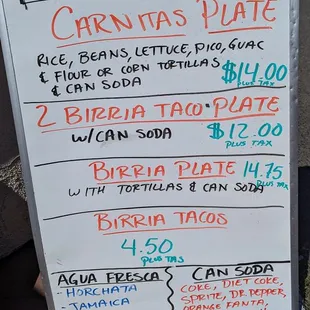 CARNITAS PLATE
RICE, BEANS, LETTUCE, PICO, GUAC
& FLOUR OR CORN TORTILLAS
& CAN SODA
$14.00
PLUS TAX
2 BIRRIA TACO PLATE
W/CAN SODA
$12.00
PLUS TAX
BIRRIA PLATE 14.75
PLUS TAX
WITH TORTILLAS & CAN SODA
BIRRIA TACOS
4.50
PLUS TAX
AGUA FRESCA
- HORCHATA
- JAMAICA
CAN SODA
COKE, DIET COKE,
SPRITE, DR. PEPPER,
ORANGE FANTA,